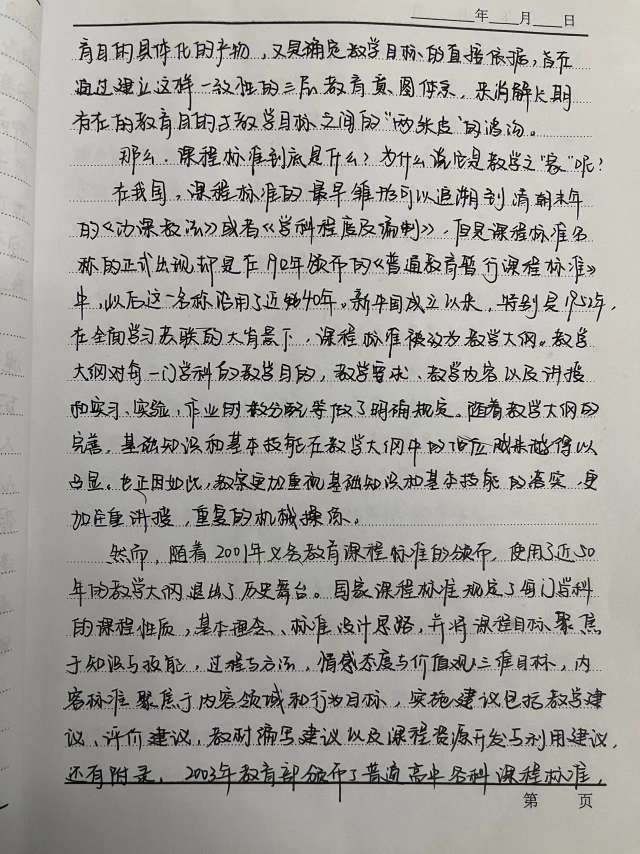 年 月 日
育目的具体化的产物，又是确定教学目标的直接依据，旨在
通过建立这样一致性的三层教育意图体系，来消解长期
存在的教育目的与教学目标之间的“两张皮”的鸿沟。
那么，课程标准到底是什么？为什么说它是教学之“家”呢？
在我国，课程标准的最早雏形可以追溯到清朝末年
的《功课教法》或者《学科程度及编制》，但是课程标准名
称的正式出现却是在1912年颁布的《普通教育暂行课程标准》
中，以后这一名称沿用了近40年。新中国成立以来，特别是1952年，
在全面学习苏联的大背景下，课程标准被改为教学大纲。教学
大纲对每一门学科的教学目的，教学要求、教学内容以及讲授
和实习、实验，作业时数分配等做了明确规定。随着教学大纲的
完善，基础知识和基本技能在教学大纲中的地位越来越得以
凸显。也正因如此，教案更加重视基础知识和基本技能的落实，更
加注重讲授，重复的机械操练。
然而，随着2001年义务教育课程标准的颁布，使用了近50
年的教学大纲退出了历史舞台。国家课程标准规定了每门学科
的课程性质，基本理念、标准设计思路，并将课程目标聚焦
于知识与技能，过程与方法，情感态度与价值观三维目标，内
容标准聚焦于内容领域和行为目标，实施建议包括教学建
议、评价建议，教材编写建议以及课程资源开发与利用建议，
还有附录。2003年教育部颁布了普通高中各科课程标准，
第 页